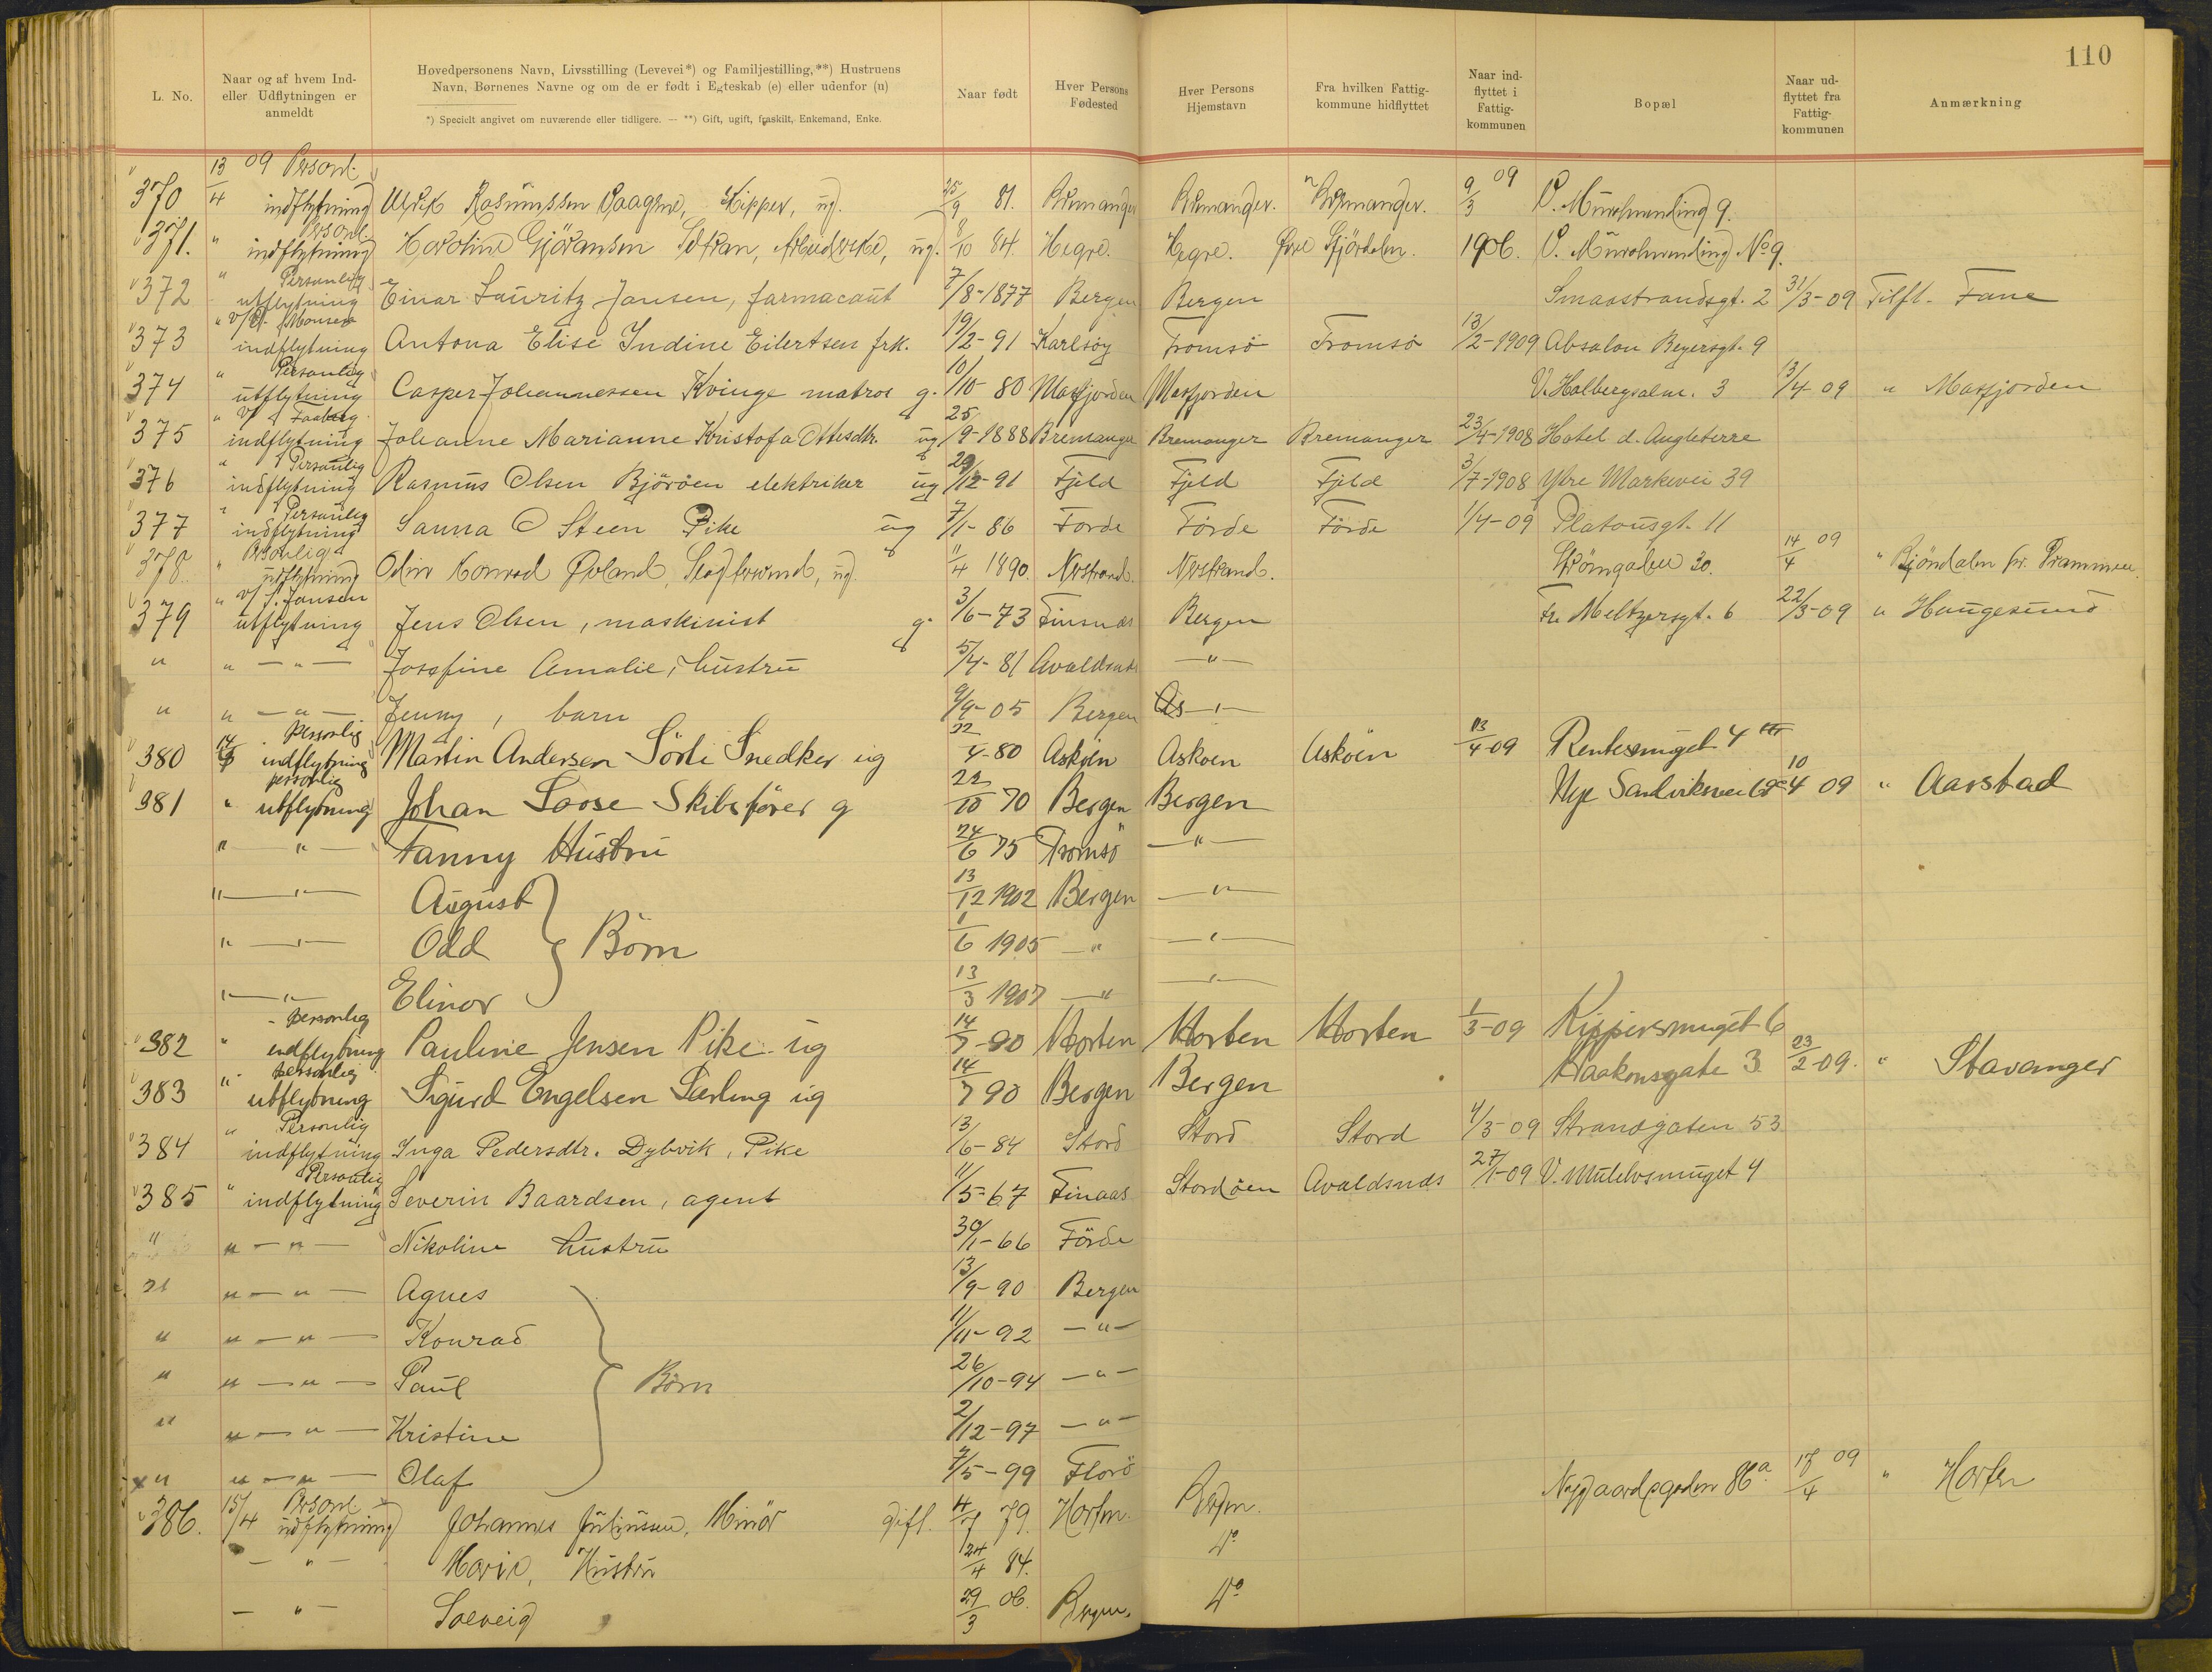 110
L. No.
Naar og af hvem Ind- eller Udflytningen er anmeldt
Hovedpersonens Navn, Livsstilling (Levevei*) og Familjestilling,**) Hustruens Navn, Børnenes Navne og om de er født i Egteskab (e) eller udenfor (u)
*) Specielt angivet om nuværende eller tidligere. — **) Gift, ugift, fraskilt, Enkemand, Enke.
Naar født
Hver Persons Fødested
Hver Persons Hjemstavn
Fra hvilken Fattig- kommune hidflyttet
Naar ind- flyttet i Fattig- kommunen
Bopæl
Naar ud- flyttet fra Fattig- kommunen
Anmærkning
370 13/4 09 Personl. indflytning Ulrik Rasmussen, Kipper, ug. 25/9 81. Bremanger Bremanger. Bremanger. 9/3 09 9.
371. " Personl indflytning Karoline Gjöransen, ug. 8/10 84. Hegre. Hegre. Øvre Stjördalen. 1906. No 9.
372 " Personlig utflytning Einar Lauritz Jansen, farmaceut 7/8-1877 Bergen Bergen Smaastrandsgt. 2 31/3-09 Tilfl. Fane
373 " v/ Monsen indflytning Antona Elise Indine Eilertsen frk. 19/2-91 Karlsöy Tromsö Tromsö 13/2-1909 Absalon Beyersgt. 9
374 " Personlig utflytning Casper Johannessen Kvinge matros g. 10/10 80 Masfjorden Masfjorden V. Holbergsalm. 3 13/4 09 " Masfjorden
375 " v/ Faaberg indflytning Johanne Marianne Kristofa Ottesdtr. ug 25/9-1888 Bremanger Bremanger Bremanger 23/4-1908 Hotel d. Angleterre
376 " Personlig indflytning Rasmus Olsen Björöen elektriker ug 29/12-91 Fjeld Fjeld Fjeld 3/7-1908 Ytre Markevei 39
377 " Personlig indflytning Sanna O Steen Pike ug 7/1-86 Förde Förde Förde 1/4-09 Platousgt. 11
378. " Personlig udflytning Odin Konrad Øvland, ug. 11/4 1890. Nerstrand. Nerstrand. Strömgaden 30. 14/4 09 " Mjöndalen pr. Drammen
379 " v/ J. Jansen utflytning Jens Olsen, maskinist g. 3/6-73 Finnaas Bergen Fr. Meltzersgt. 6 22/3-09 " Haugesund
" " — " — Josefine Amalie, hustru 5/4-81 Avaldsnes — " —
" " — " — Jenny, barn 9/9-05 Bergen — " —
380 14/4 personlig indflytning Martin Andersen Sörli Snedker ug 22/4-80 Askøen Askøen Askøen 13/4-09 Rentesmuget 4
381 " personlig utflytning Johan Loose Skibsfører g 22/10 70 Bergen Bergen Nye Sandviksvei 10/4 09 " Aarstad
" — " — Fanny Hustru 24/6 75 Tromsö — " —
" — " — August 13/12 1902 Bergen — " —
" — " — Odd } Börn 1/6 1905 — " — " —
" — " — Elinor 13/3 1907 — " — " —
382 " personlig indflytning Pauline Jensen Pike ug 14/7-90 Horten Horten Horten 1/3-09 Kippersmuget 6
383 " personlig utflytning Sigurd Engelsen Lærling ug 14/7 90 Bergen Bergen Haakonsgate 3 23/2-09. " Stavanger
384 " Personlig indflytning Inga Pedersdtr. Dybvik, Pike 13/6-84 Stord Stord Stord 4/3-09 Strandgaten 53
385 " Personlig indflytning Severin Baardsen, agent 11/5-67 Finaas Stordöen Avaldsnds 27/1-09 V. Mulelvsmuget 4
" " — " — Nikoline hustru 30/1-66 Förde
" " — " — Agnes 13/9-90 Bergen
" " — " — Konrad 11/11-92 — " —
" " — " — Paul } Börn 26/10-94 — " —
" " — " — Kristine 2/12-97 — " —
" " — " — Olaf 7/5-99 Florö
386. 15/4 Personl udflytning Johannes Juliussen, Minör gift. 4/7 79. Horten. Bergen. Nygaardsgaden 86a 17/4 09 " Horten
— " — Marie, Hustru 24/4 84. Do
— " — Solveig 29/3 06. Bergen. Do